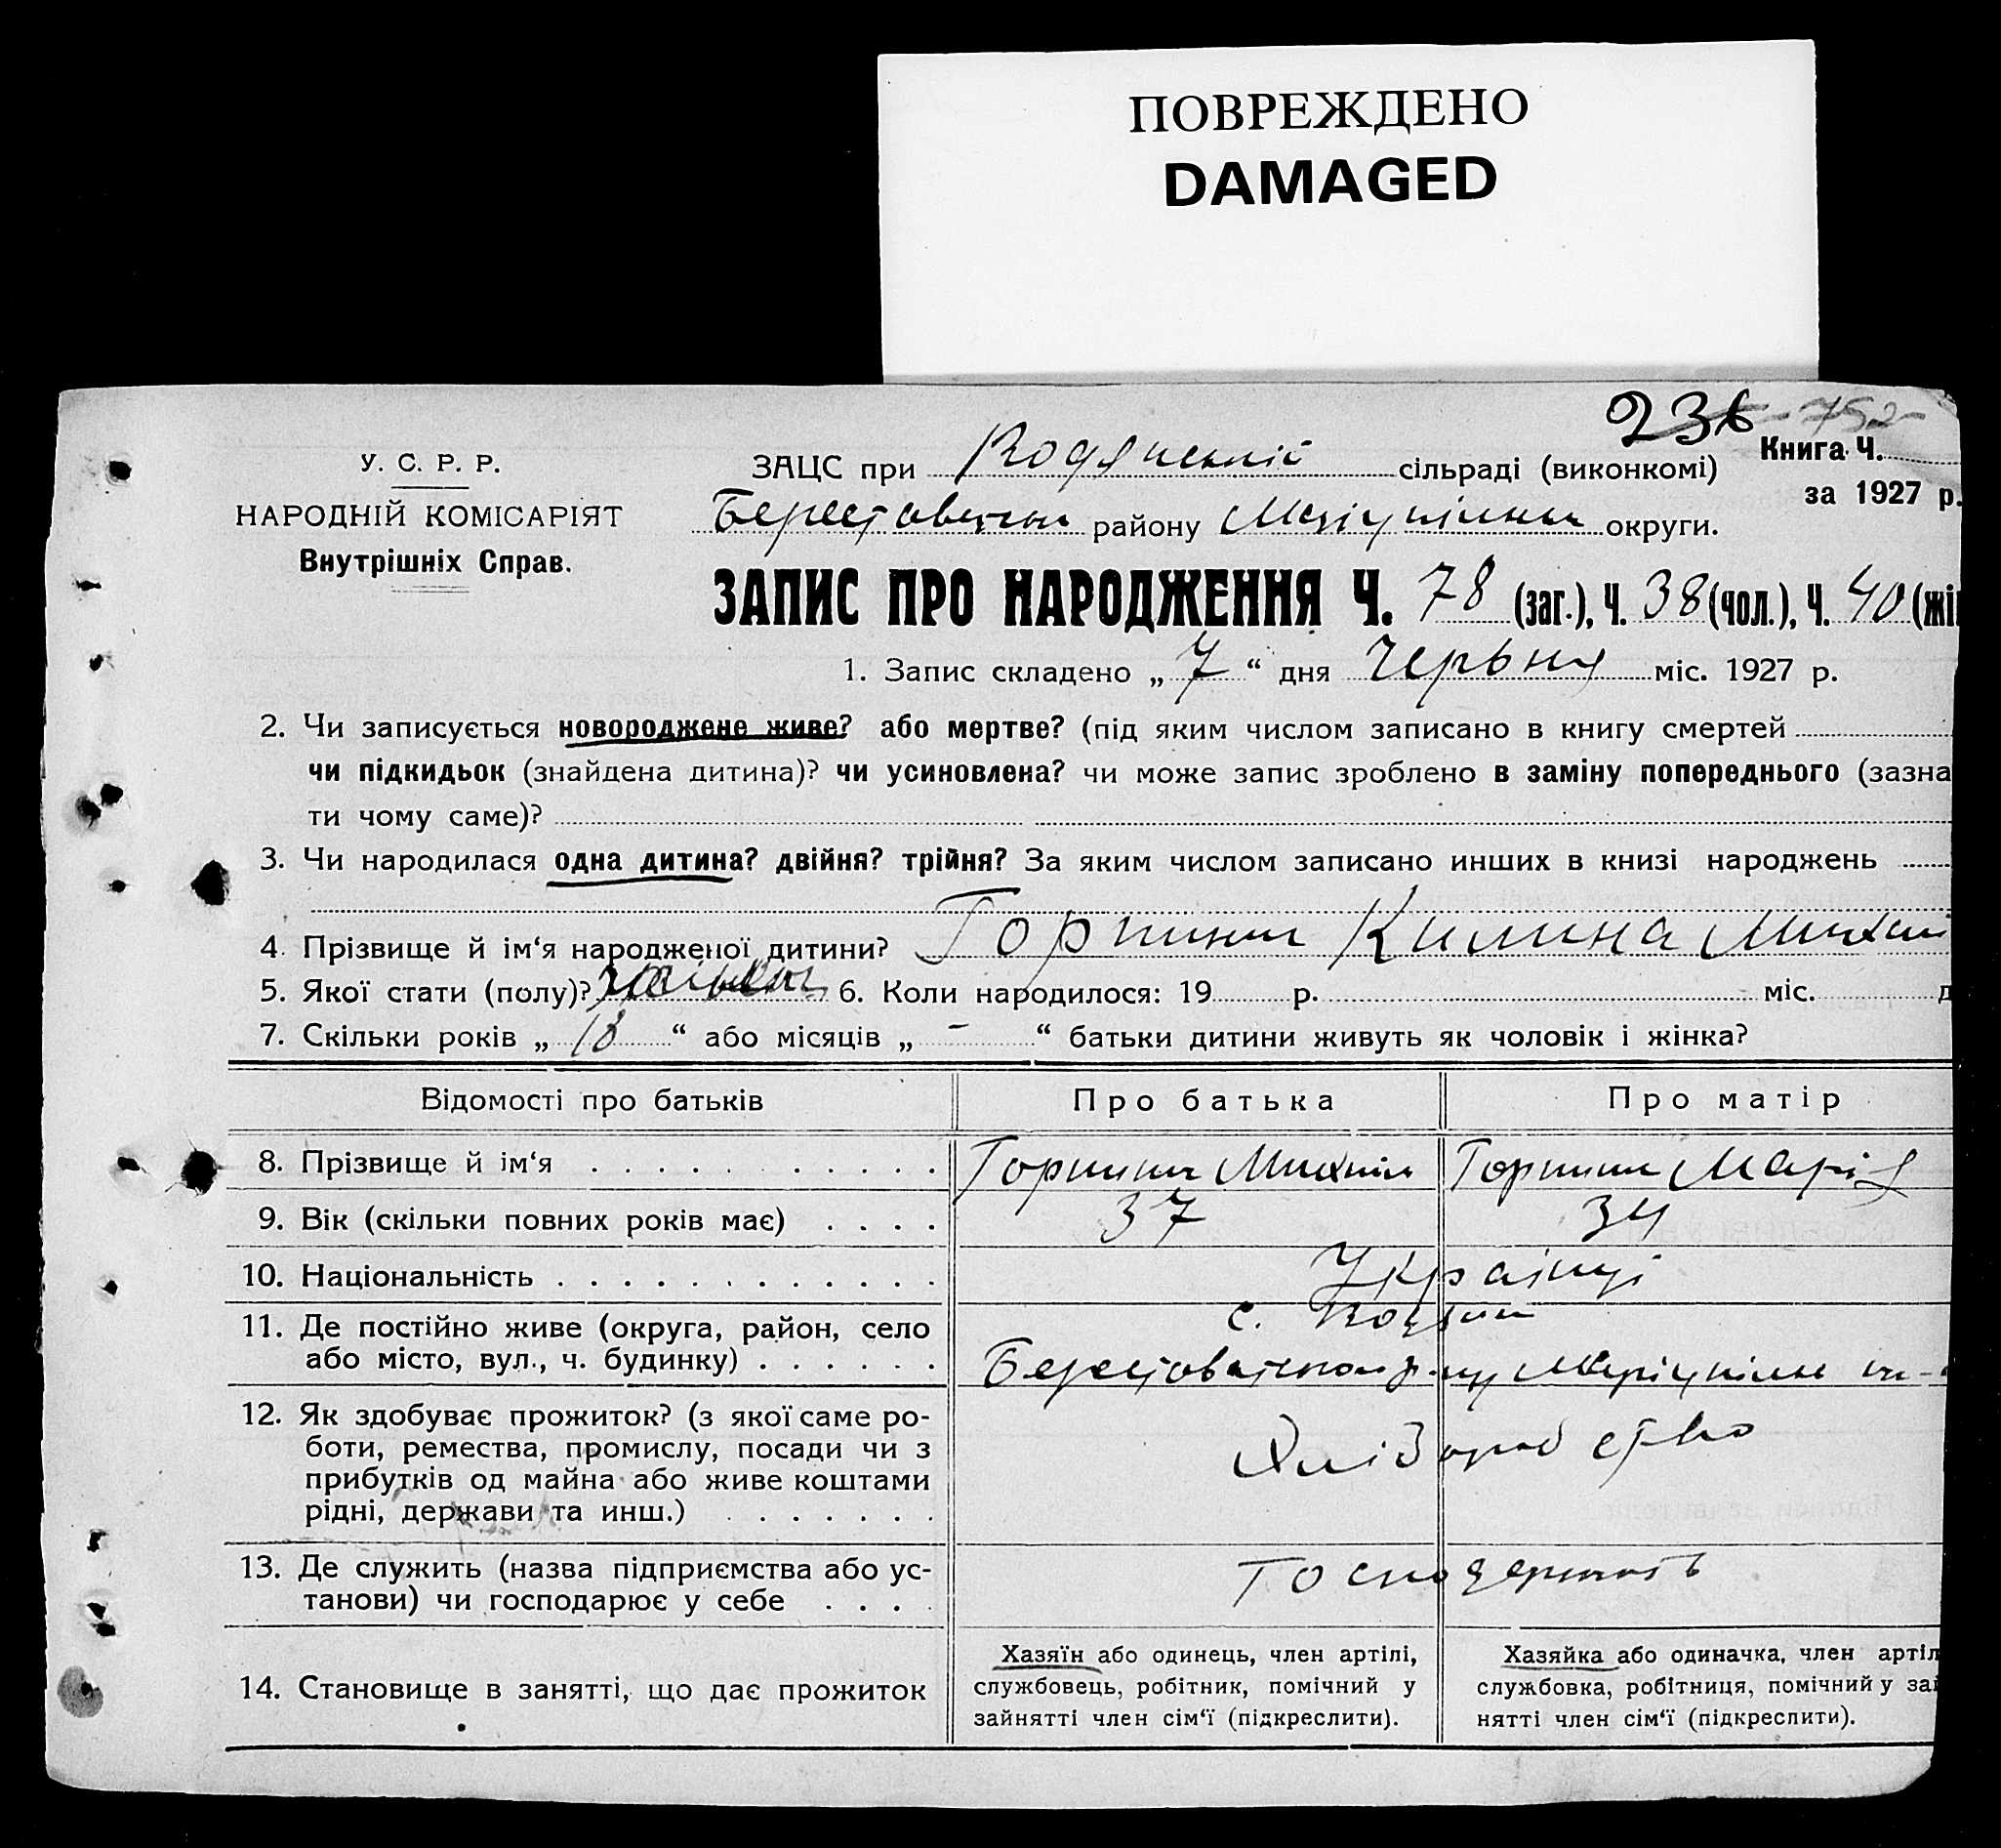 ПОВРЕЖДЕНО
DAMAGED
У. С. Р. Р.
НАРОДНІЙ КОМІСАРІЯТ
Внутрішніх Справ.
ЗАЦС при сільраді (виконкомі)
Книга Ч.
за 1927 р.
району округи.
ЗАПИС ПРО НАРОДЖЕННЯ Ч. 78 (заг.), Ч. 38 (чол.), Ч. 40 (жі
1. Запис складено „ 7 “ дня Червня міс. 1927 р.
2. Чи записується новороджене живе? або мертве? (під яким числом записано в книгу смертей
чи підкидьок (знайдена дитина)? чи усиновлена? чи може запис зроблено в заміну попереднього (зазна
ти чому саме)?
3. Чи народилася одна дитина? двійня? трійня? За яким числом записано инших в книзі народжень
4. Прізвище й ім‘я народженої дитини? Килина
5. Якої стати (полу)? 6. Коли народилося: 19 р. міс. д
7. Скільки років „ 18 “ або місяців „ - “ батьки дитини живуть як чоловік і жінка?
Відомості про батьків Про батька Про матір
8. Прізвище й ім‘я Михаіл Марія
9. Вік (скільки повних років має) 37 34
10. Національність Українці
11. Де постійно живе (округа, район, село
або місто, вул., ч. будинку)
с.
12. Як здобуває прожиток? (з якої саме ро-
боти, ремества, промислу, посади чи з
прибутків од майна або живе коштами
рідні, держави та инш.)
Хліборобство
13. Де служить (назва підприємства або ус-
танови) чи господарює у себе
14. Становище в занятті, що дає прожиток
Хазяїн або одинець, член артілі,
службовець, робітник, помічний у
зайнятті член сім‘ї (підкреслити).
Хазяйка або одиначка, член артіл
службовка, робітниця, помічний у зай
нятті член сім‘ї (підкреслити).